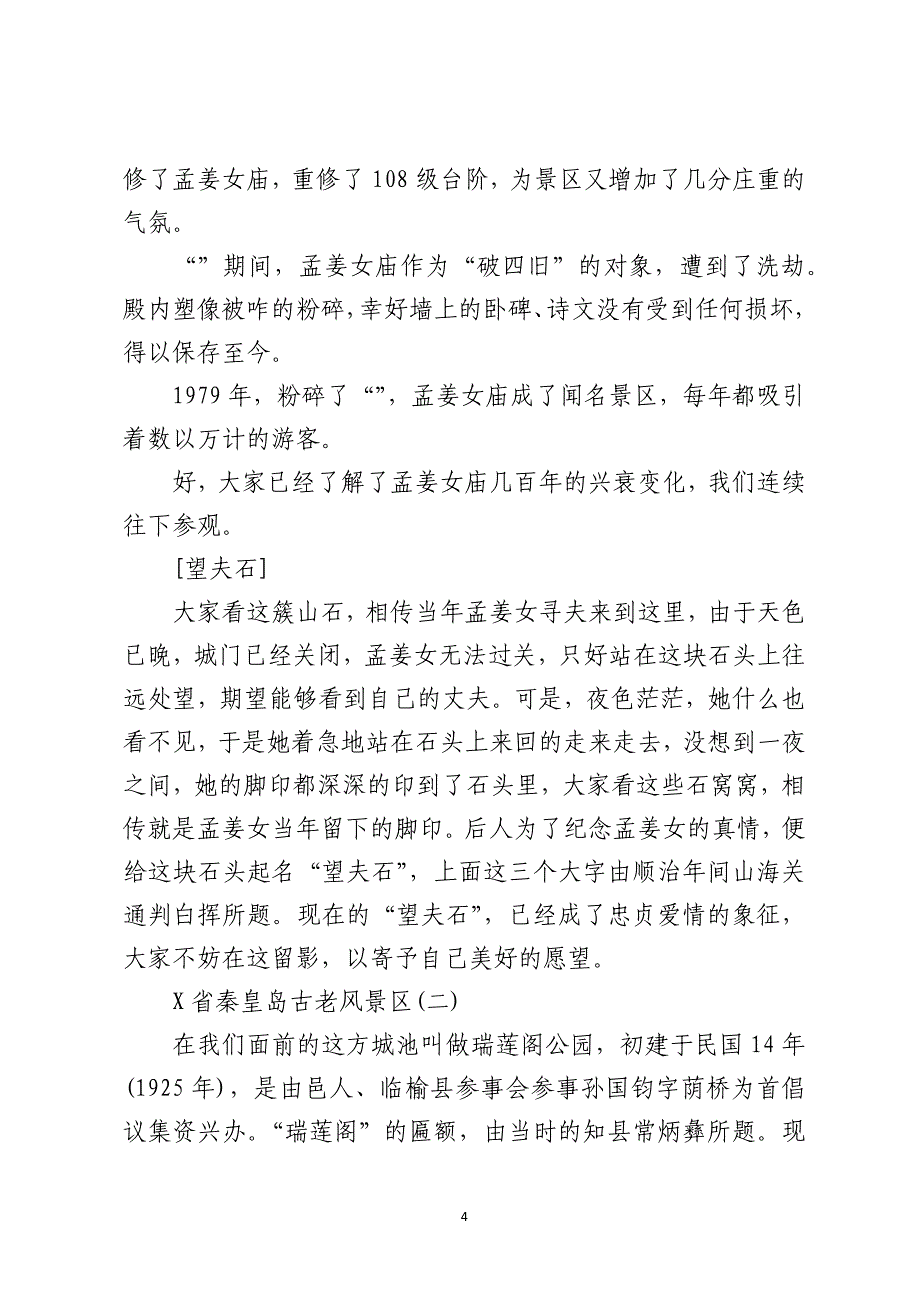 修了孟姜女庙，重修了 108 级台阶，为景区又增加了几分庄重的
气氛。
“”期间，孟姜女庙作为“破四旧”的对象，遭到了洗劫。
殿内塑像被咋的粉碎，幸好墙上的卧碑、诗文没有受到任何损坏，
得以保存至今。
1979 年，粉碎了“”，孟姜女庙成了闻名景区，每年都吸引
着数以万计的游客。
好，大家已经了解了孟姜女庙几百年的兴衰变化，我们连续
往下参观。
[望夫石]
大家看这簇山石，相传当年孟姜女寻夫来到这里，由于天色
已晚，城门已经关闭，孟姜女无法过关，只好站在这块石头上往
远处望，期望能够看到自己的丈夫。可是，夜色茫茫，她什么也
看不见，于是她着急地站在石头上来回的走来走去，没想到一夜
之间，她的脚印都深深的印到了石头里，大家看这些石窝窝，相
传就是孟姜女当年留下的脚印。后人为了纪念孟姜女的真情，便
给这块石头起名“望夫石”，上面这三个大字由顺治年间山海关
通判白挥所题。现在的“望夫石”，已经成了忠贞爱情的象征，
大家不妨在这留影，以寄予自己美好的愿望。
X 省秦皇岛古老风景区(二)
在我们面前的这方城池叫做瑞莲阁公园，初建于民国 14 年
(1925 年)，是由邑人、临榆县参事会参事孙国钧字荫桥为首倡
议集资兴办。“瑞莲阁”的匾额，由当时的知县常炳彝所题。现
4